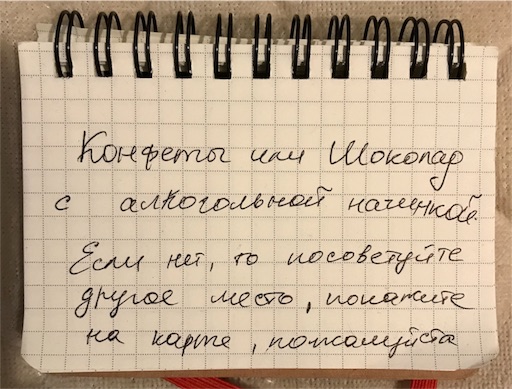 Конфеты или Шоколад
с алкогольной начинкой
Если нет, то посоветуйте
другое место, покажите
на карте, пожалуйста